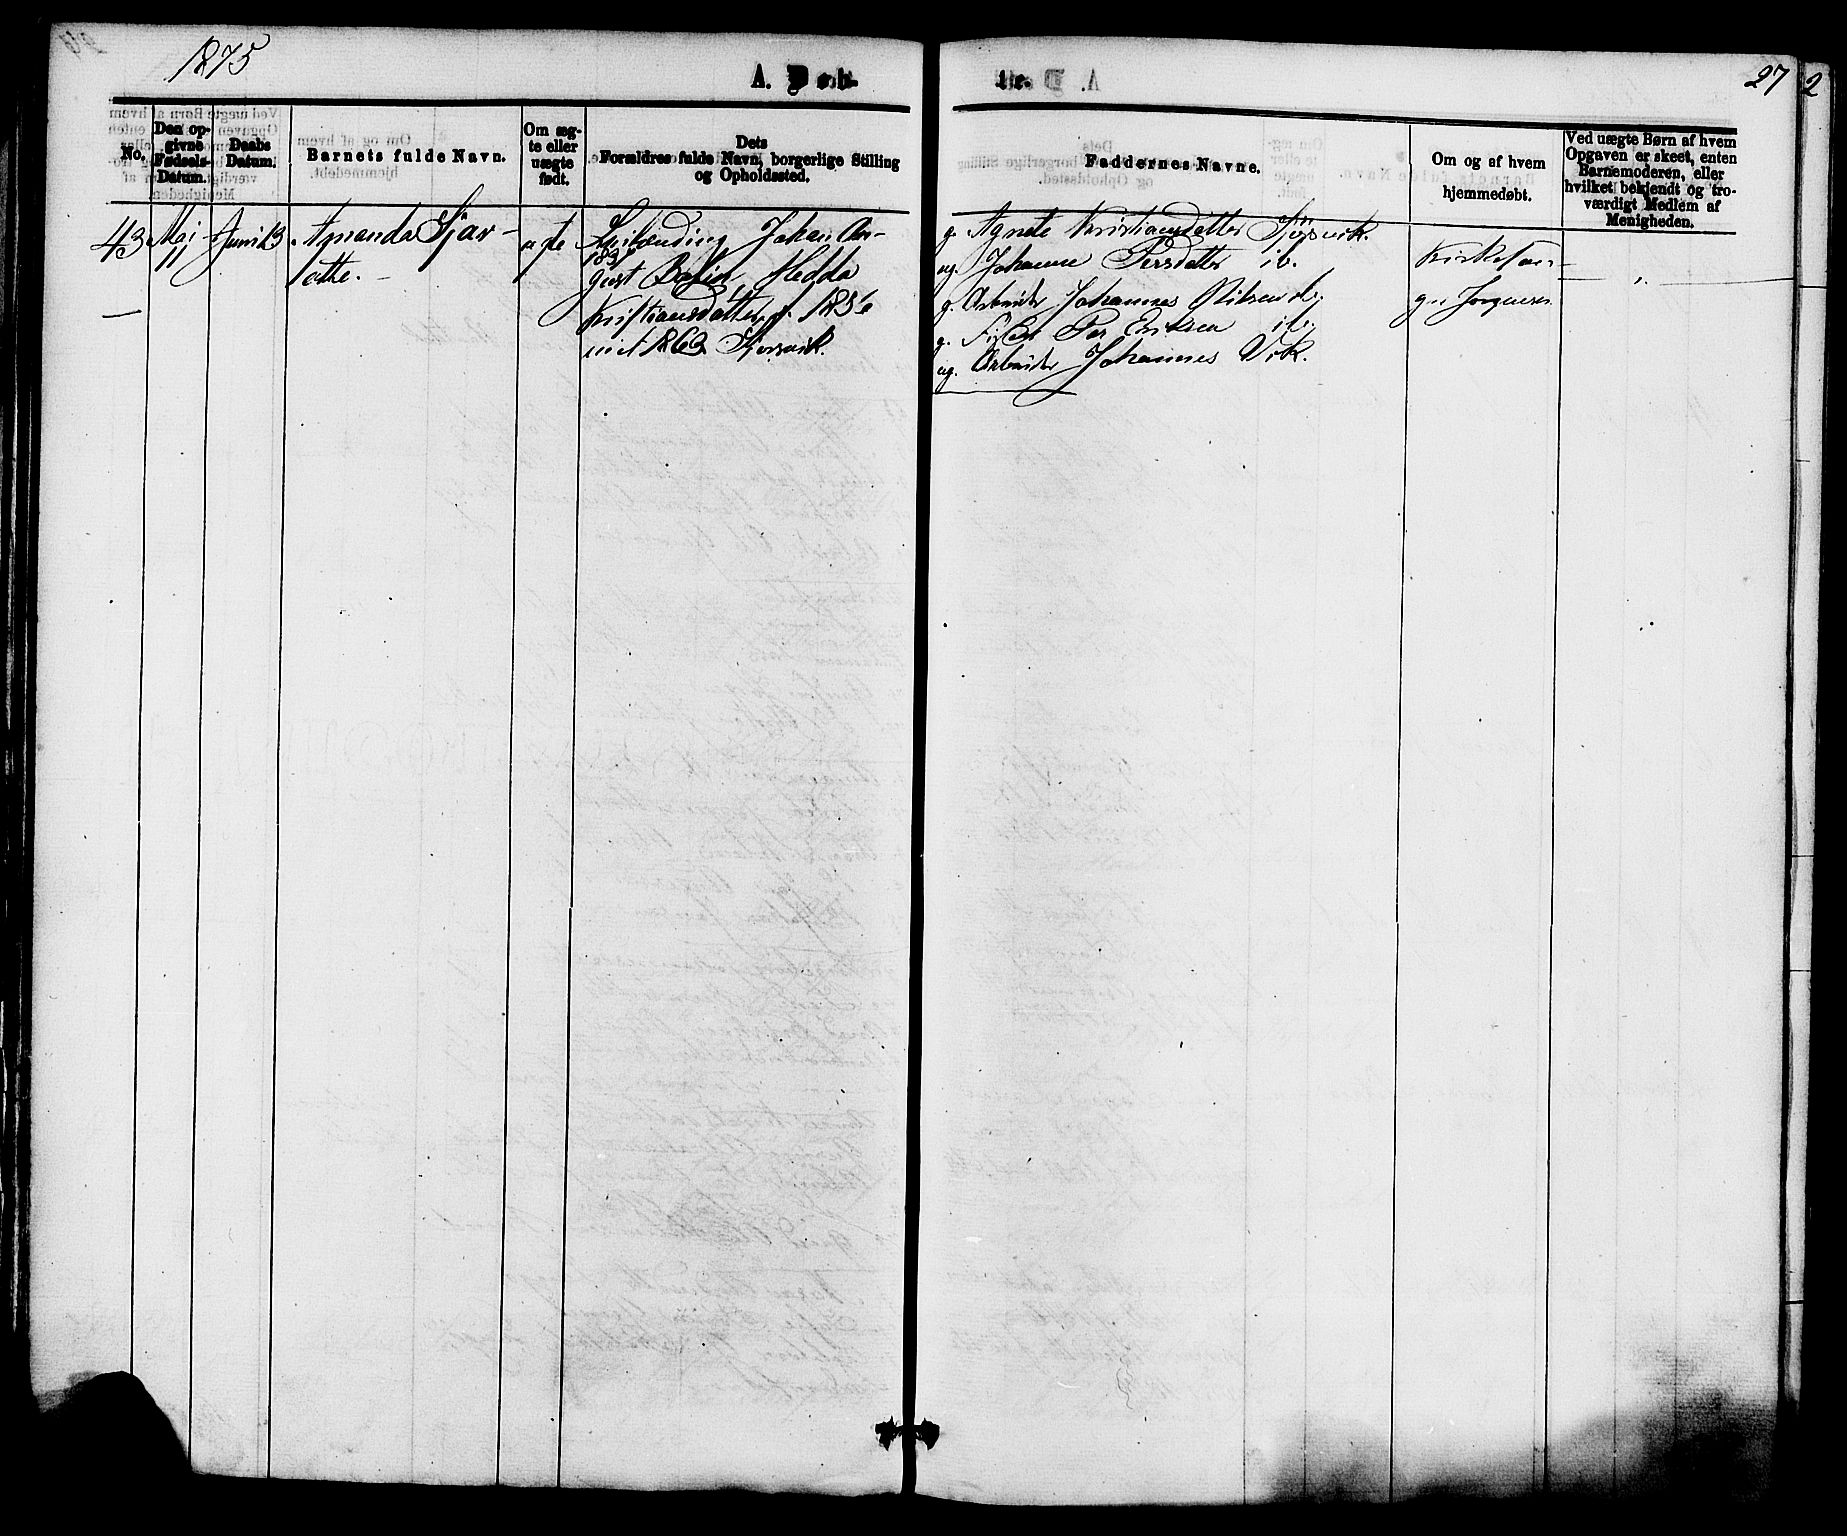 1875
A. Døb-
te.
27
2
No.
Den op-
givne
Fødsels-
Datum.
Daabs
Datum.
Barnets fulde Navn.
Om æg-
te eller
uægte
født.
Dets
Forældres fulde Navn, borgerlige Stilling
og Opholdssted.
Faddernes Navne.
Om og af hvem
hjemmedøbt.
Ved uægte Børn af hvem
Opgaven er skeet, enten
Barnemoderen, eller
hvilket bekjendt og tro-
værdigt Medlem af
Menigheden.
43
Mai
11
Juni 13
Amanda Sjar-
lotte.
Johan Au-
gust Hedda
Kristiansdatter f. 1836
viet 1863
g. Agnete Kristiansdatter
ug. Johanne Persdatter ib.
g. Arbeider Johannes Nilsen
g. Per Eriksen ib.
ug. Arbeider Johannes Vik.
Kirkesan-
ger Jørgensen